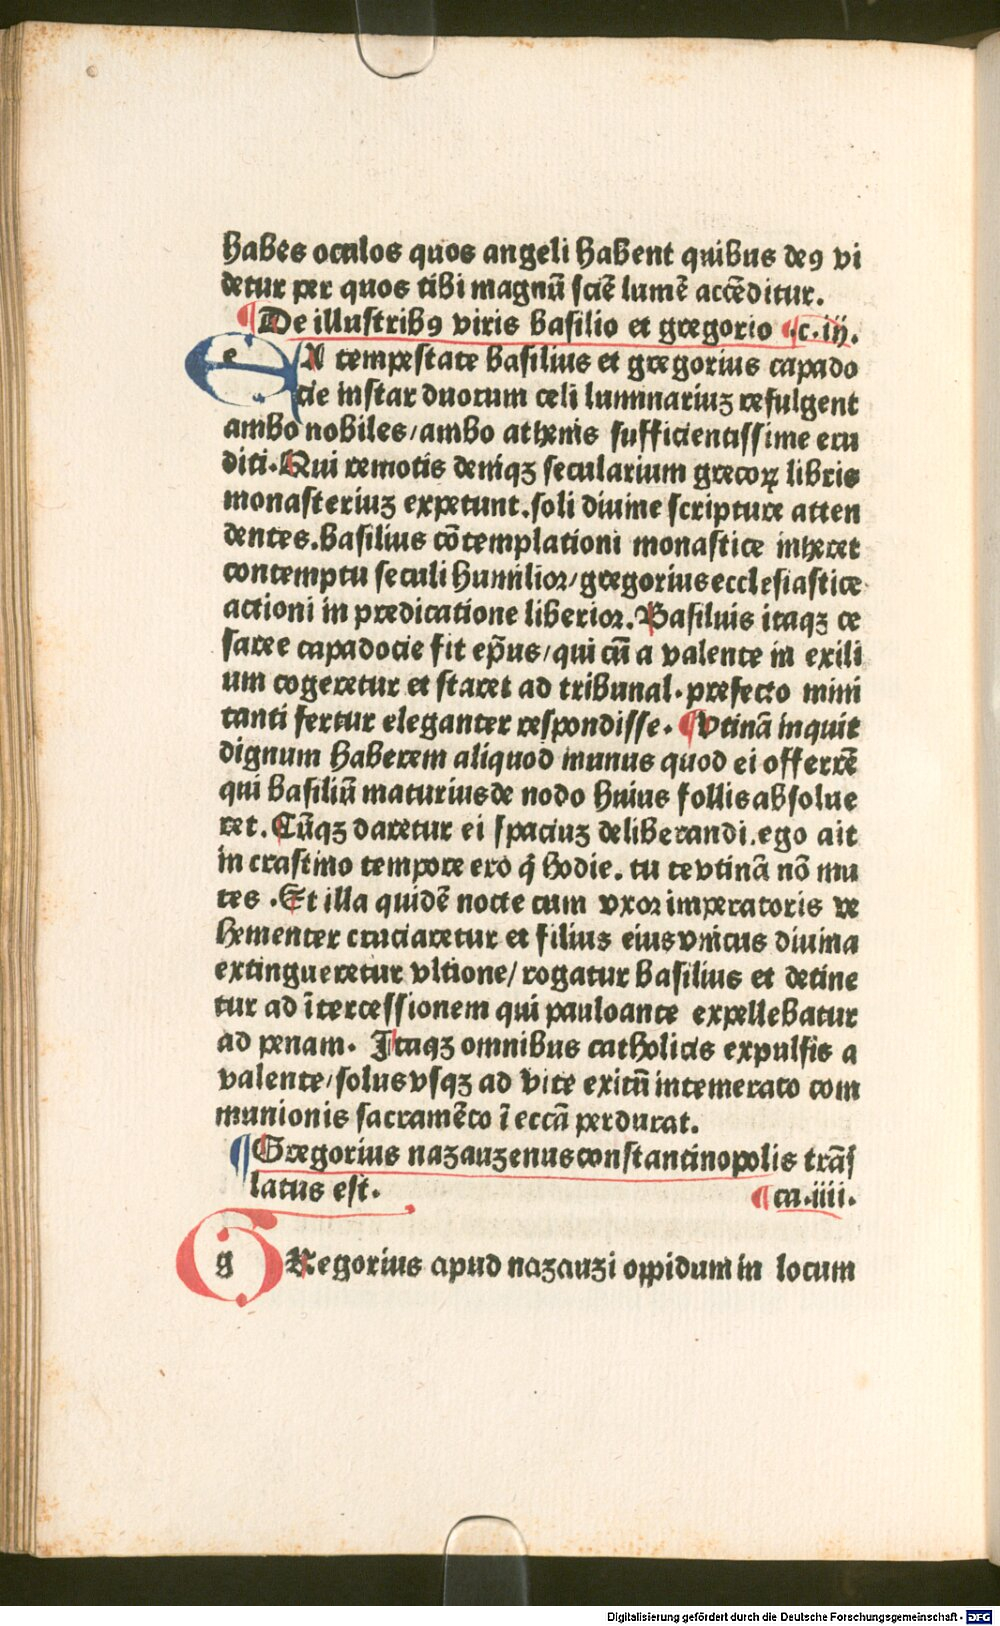 habes oculos quos angeli habent quibus deꝰ vi
detur per quos tibi magnū sciē lumē accēditur.
¶De illustribꝰ viris basilio et gregorio ¶.c.iij.
eA tempestate basilius et gregorius capado
cie instar duorum celi luminariuꝫ refulgent
ambo nobiles/ambo athenis sufficientissime eru
diti.Qui remotis deniqꝫ secularium grecoꝝ libris
monasteriuꝫ expetunt.soli diuine scripture atten
dentes.basilius cōtemplationi monastice inheret
contemptu seculi humilior/gregorius ecclesiastice
actioni in predicatione liberior.Basilius itaqꝫ ce
saree capadocie fit ep̄us/qui cū a valente in exili
um cogeretur et staret ad tribunal.prefecto mini
tanti fertur eleganter respondisse.¶Vtinā inquit
dignum haberem aliquod munus quod ei offerrē
qui basiliū maturius de nodo huius follis absolue
ret.Cūqꝫ daretur ei spaciuꝫ deliberandi.ego ait
in crastino tempore ero q̄ hodie.tu te vtinā nō mu
tes .Et illa quidē nocte cum vxor imperatoris ve
hementer cruciaretur et filius eius vnicus diuina
extingueretur vltione/rogatur basilius et detine
tur ad ītercessionem qui pauloante expellebatur
ad penam. Itaqꝫ omnibus catholicis expulsis a
valente/solus vsqꝫ ad vite exitū intemerato com
munionis sacramēto ī eccā perdurat.
¶Gregorius nazauzenus constantinopolis trās
latus est. ¶ca.iiii.
gRegorius apud nazauzi oppidum in locum
Digitalisierung gefördert durch die Deutsche Forschungsgemeinschaft - DFG